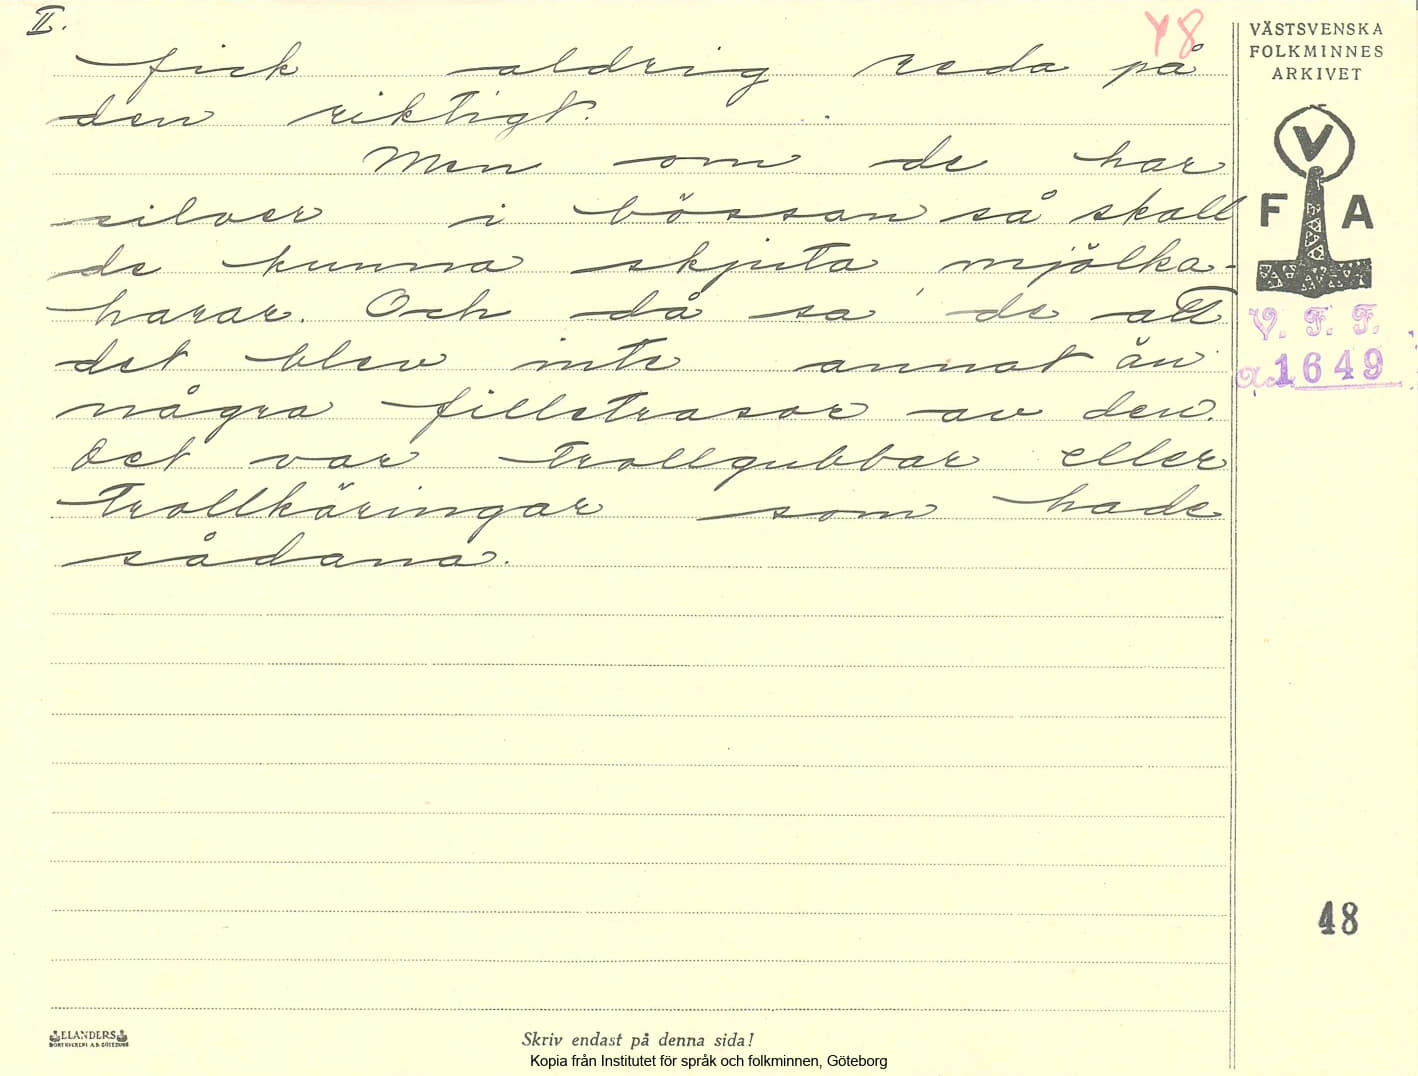 II.
Y8
fick aldrig reda på
den riktigt.
Men om de har
silver i bössan så skall
de kunna skjuta mjölka-
harar. Och då sa' de att
det blev inte annat än
några filletrasor av den.
Det var trollgubbar eller
trollkäringar som hade
sådana.
VÄSTSVENSKA
FOLKMINNES
ARKIVET
V
F A
V. F. F.
1649
48
ELANDERS
BOKTRYCKERI A.B. GÖTEBORG
Skriv endast på denna sida!
Kopia från Institutet för språk och folkminnen, Göteborg